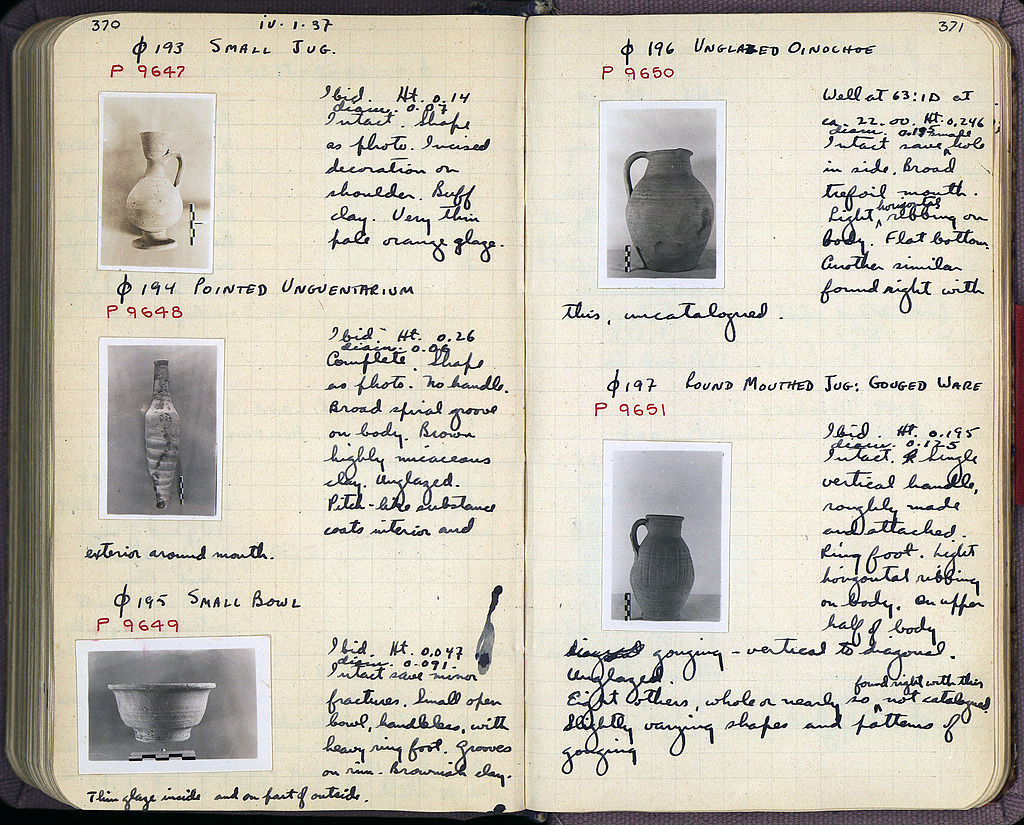 370
iv. 1. 37
φ 193 SMALL JUG.
P 9647
Ibid. Ht. 0.14
diam. 0.07
Intact. Shape
as photo. Incised
decoration on
shoulder. Buff
clay. Very thin
pale orange glaze.
φ 194 POINTED UNGUENTARIUM
P 9648
Ibid. Ht. 0.26
diam. 0.06
Complete. Shape
as photo. No handle.
Broad spiral groove
on body. Brown
highly micaceous
clay. Unglazed.
Pitch-like substance
coats interior and
exterior around mouth.
φ 195 SMALL BOWL
P 9649
Ibid. Ht. 0.047
diam. 0.091.
Intact save minor
fractures. Small open
bowl, handleless, with
heavy ring foot. Grooves
on rim. Brownish clay.
Thin glaze inside and on part of outside.
371
φ 196 UNGLAZED OINOCHOE
P 9650
Well at 63:ID at
ca. 22.00. Ht. 0.246
diam. 0.195 small
Intact save hole
in side. Broad
trefoil mouth.
horizontal
Light ribbing on
body. Flat bottom.
Another similar
found right with
this, uncatalogued.
φ 197 ROUND MOUTHED JUG: GOUGED WARE
P 9651
Ibid. Ht. 0.195
diam. 0.125
Intact. Single
vertical handle,
roughly made
and attached.
Ring foot. Light
horizontal ribbing
on body. On upper
half of body
gouging - vertical to diagonal.
Unglazed.
found right with this
Eight others, whole or nearly so, not catalogued.
Slightly varying shapes and patterns of
gouging